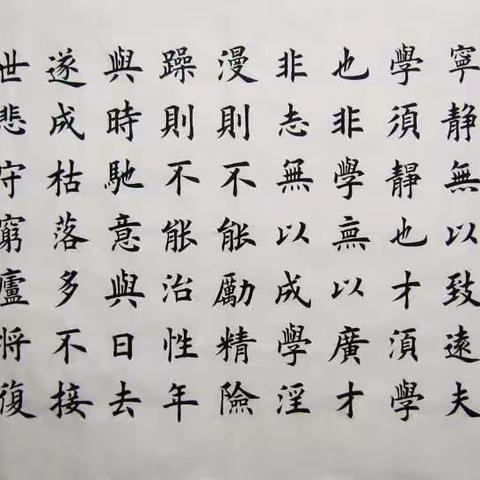 寧靜無以致遠夫
學須靜也才須學
也非學無以廣才
非志無以成學淫
漫則不能勵精險
躁則不能治性年
與時馳意與日去
遂成枯落多不接
世悲守窮廬將復